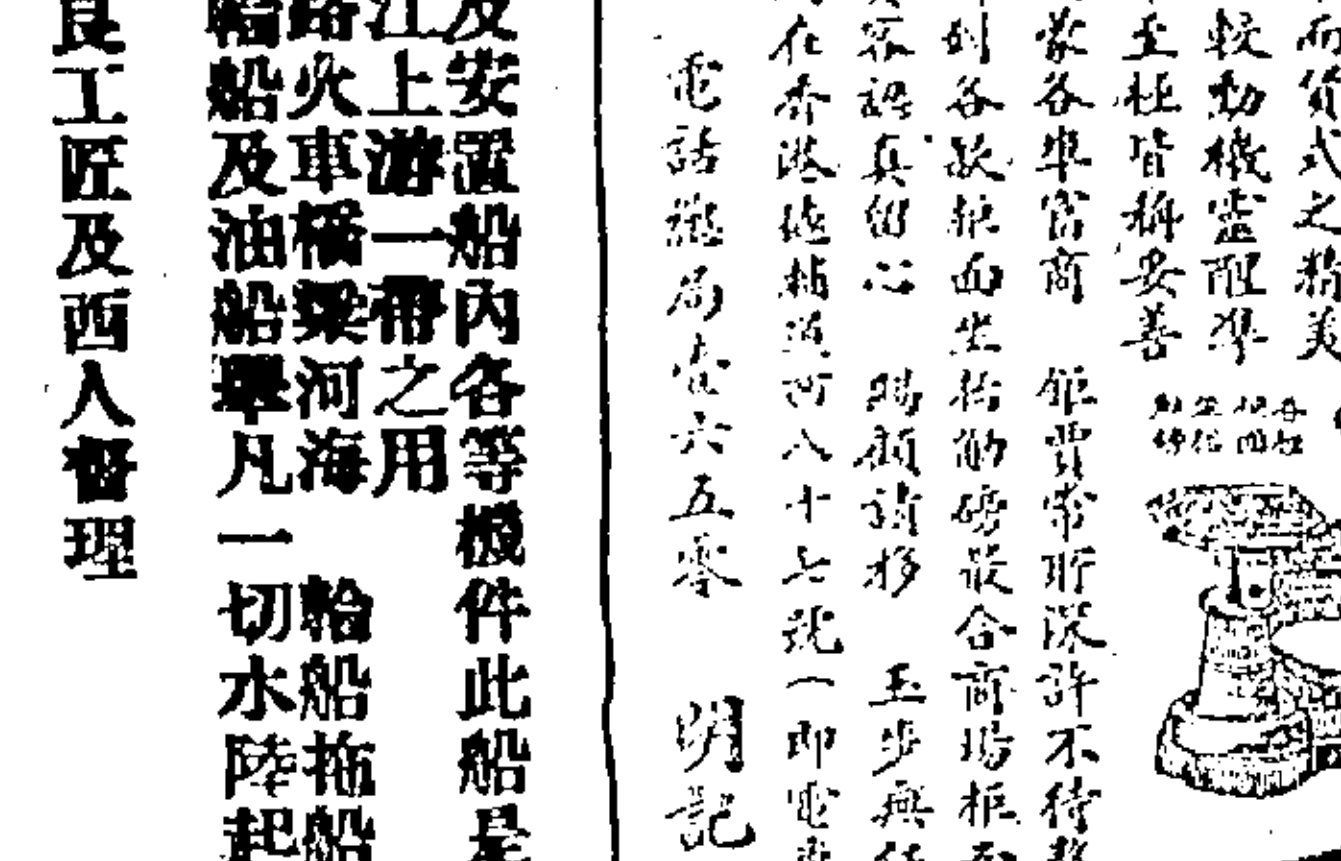 而貨式之精美
較動機靈醒準
至極皆稱妥善
蒙各軍官商 鉅賈常聘深許不待
到各款 面坐 磅最合商場柜
認真留心 賜顧請移 玉步無任
在香港德輔道西八十七號(即電車
電話總局壹六五零 明記
及安置船內各等機件此船是
江上游一帶之用
路火車橋梁河海 輪船拖船
輪船及油船舉凡一切水陸起
良工匠及西人督理